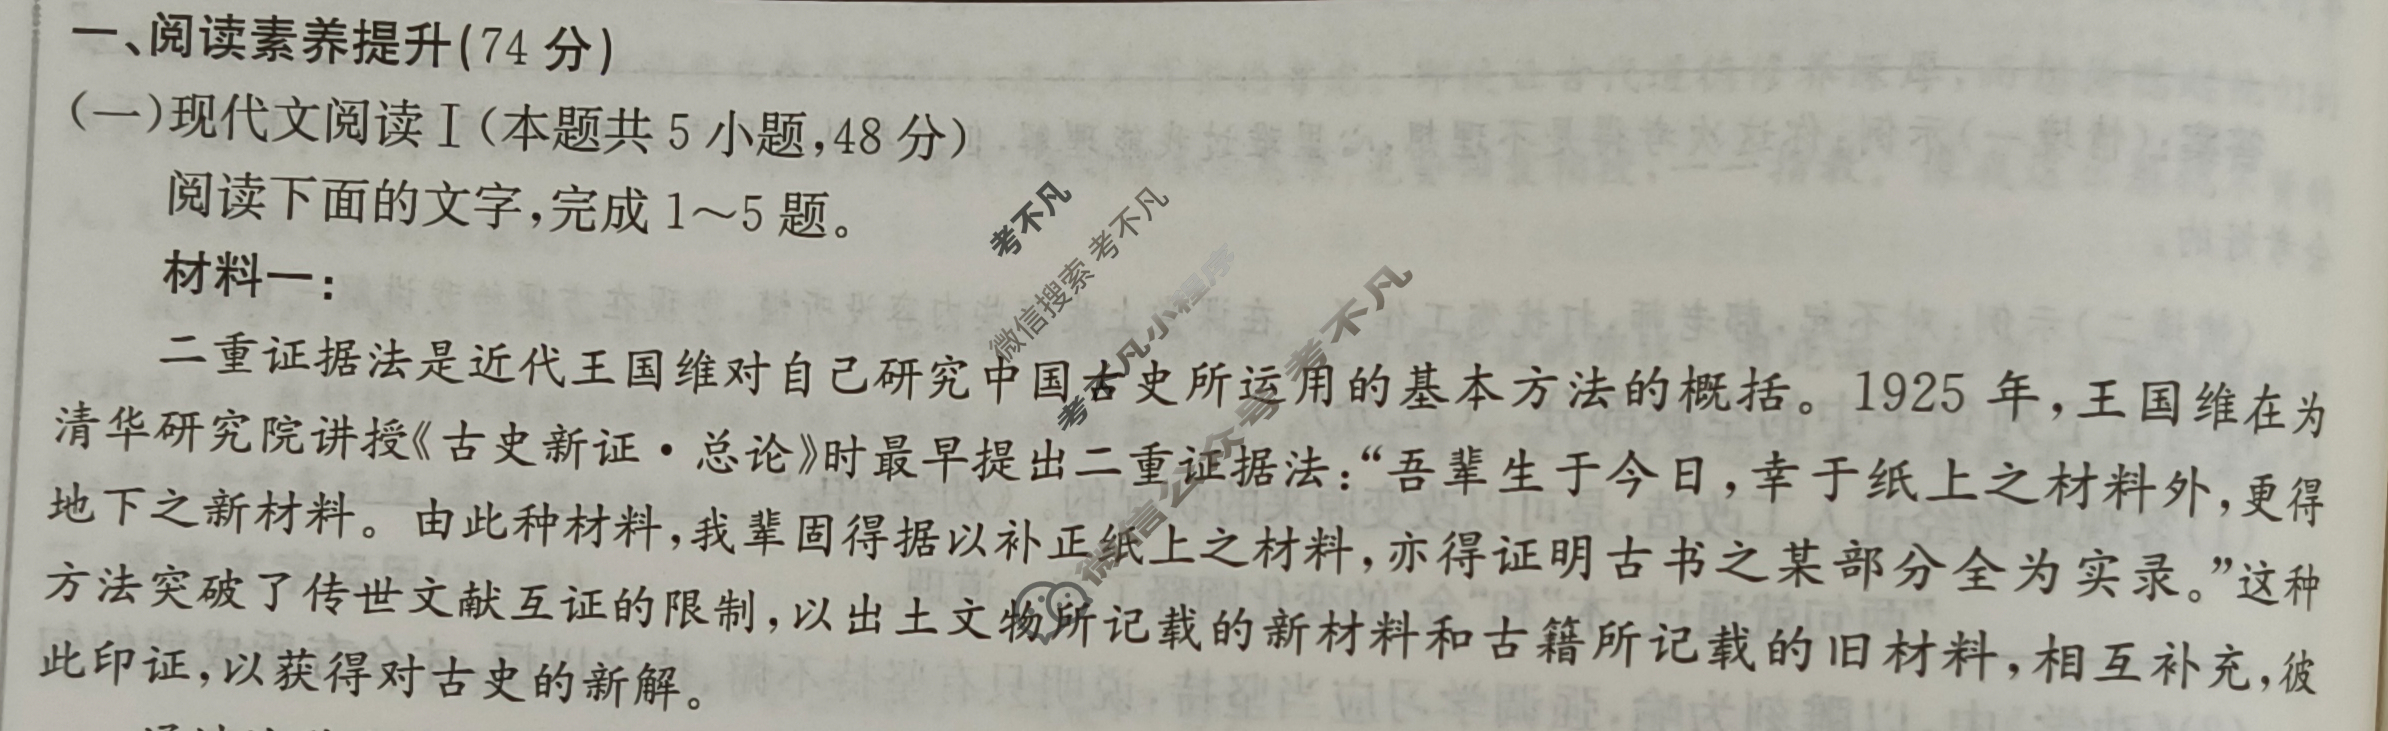 一、阅读素养提升(74 分)
(一)现代文阅读Ⅰ(本题共 5 小题,48 分)
阅读下面的文字,完成 1～5 题。
材料一:
二重证据法是近代王国维对自己研究中国古史所运用的基本方法的概括。1925 年,王国维在为
清华研究院讲授《古史新证·总论》时最早提出二重证据法:“吾辈生于今日,幸于纸上之材料外,更得
地下之新材料。由此种材料,我辈固得据以补正纸上之材料,亦得证明古书之某部分全为实录。”这种
方法突破了传世文献互证的限制,以出土文物所记载的新材料和古籍所记载的旧材料,相互补充,彼
此印证,以获得对古史的新解。
考不凡
微信搜索 考不凡
考不凡小程序
微信公众号 考不凡